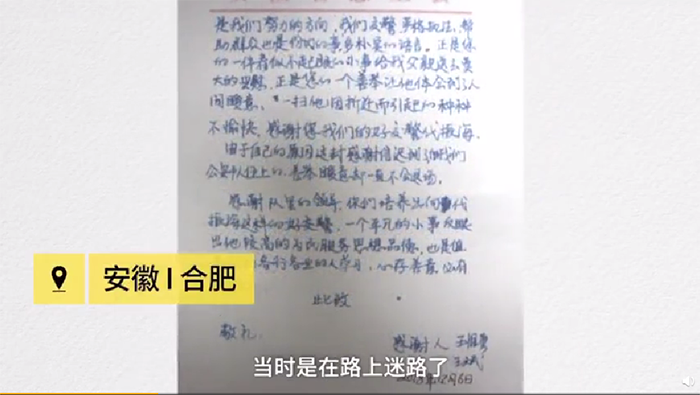 是我们努力的方向，我们交警严格执法，帮
助群众也是你们的真身朴实的语言。正是你
们一件看似不起眼的小事给我父亲送去莫
大的安慰，正是您们一个善举让他体会到了人
间暖意，一扫他因拆迁而引起的种种
不愉快，感谢您我们的好交警代振海。
由于自己的原因这封感谢信迟到了但我们
公安队伍上的善举暖意却一直不会退场。
感谢队里的领导，你们培养出向代
振海这样的好交警，一个平凡的小事反映
出他较高的为民服务思想品德，也是值
各行各业的人学习，心存善意，必有
此致
敬礼
感谢人
12月6日
安徽 | 合肥
当时是在路上迷路了